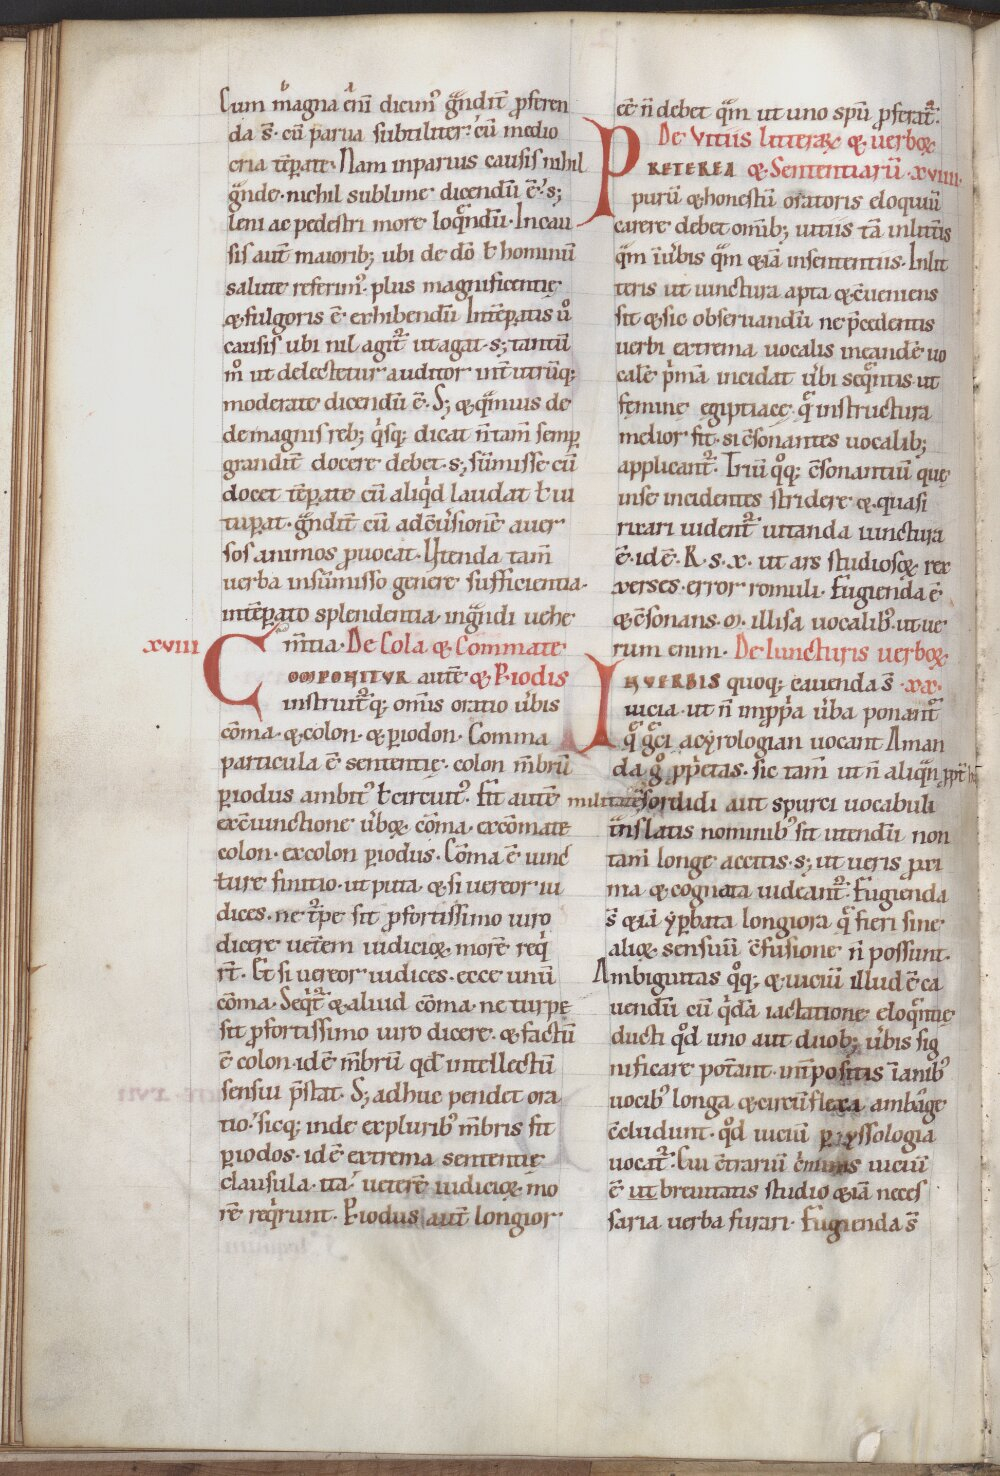 Cum magna enī dicim᷒ grandit᷑ pferen
da s̄. cū parua subtiliter. cū medio
cria tēperate. Nam in paruis causis nihil
grande. nichil sublime dicendū ē. s;
leni ac pedestri more loquendū. In cau
sis aut̄ maiorib; ubi de dō ł hominū
salute referim᷒. plus magnificentię
& fulgoris ē exhibendū. Intēpatis ů
causis ubi nil agit᷑ ut agat. s; tantū
m̊ ut delectetur auditor int̄ utrūq;
moderate dicendū ē. S; & quāuis de
de magnis reb; qisq; dicat n̄ tam̄ semp
grandit̄ docere debet. s; sūmisse cū
docet tēpate cū aliqid laudat ł ui
tupat. grandit̄ cū ad c̄uersionē auer
sos animos puocat. Utenda tam̄
uerba in sūmisso genere sufficientia.
in tēperato splendentia. in grandi uehe
m̄tia. De Cola & Commate
xviii
COMPONITUR autē & Piodis
instruit᷑q; omīs oratio ůbis
cōma. & colon. & piodon. Comma
particula ē sententię. colon m̄brū
piodus ambit᷒ ł circuit᷒. Fit autē
ex c̄iunctione ůboꝝ. cōma. ex cōmate
colon. ex colon piodus. Cōma ē iunc
turę finitio. ut puta. & si uereor iu
dices. ne turpe sit p fortissimo uiro
dicere uetērem iudicioꝝ morē req
rt̄. Et si uereor iudices. ecce unū
cōma. Seqt᷑ & aliud cōma. ne turpe
sit p fortissimo uiro dicere. & factū
ē colon. id ē m̄brū qd̄ intellectū
sensui p̄stat. S; adhuc pendet ora
tio. sicq; inde ex plurib᷒ m̄bris fit
piodos. id ē extrema sententię
clausula. ita. ueterē iudicioꝝ mo
rē reqrunt. Piodus aut̄ longior
eē n̄ debet quā ut uno spū pferat᷑.
De Vitiis litterarꝝ & uerboꝝ
PRETEREA & Sententiarū. xviiii.
purū & honestū oratoris eloquiū
carere debet omīb; uitiis tā in litt̄is
quā ī ůbis quā &iā in sententiis. In lit
teris ut iunctura apta & c̄ueniens
sit & sic obseruandū ne p̄cedentis
uerbi extrema uocalis in eandē uo
calē pimā incidat ůbi sequentis. ut
feminę egiptiacę. quę instructura
melior fit. si c̄sonantes uocalib;
applicant᷑. Triū qoq; c̄sonantiū quę
in se incidentes stridere & quasi
rixari uident᷑ uitanda iunctura
ē. id ē. R. s. x. ut ars studiosoꝝ. rex
xerses. error romuli. Fugienda ē
& c̄sonans .m. illisa uocalib᷒. ut ue
rum enim. De Iuncturis uerboꝝ
IN VERBIS quoq; cauenda s̄ .xx.
uicia. ut n̄ imppria ůba ponant᷑
quę gręci acyrologian uocant. Aman
da g̊ pprietas. sic tam̄ ut n̄ aliquan ppt̄
militatē sordidi aut spurci uocabuli
translatis nominib᷒ sit utendū non
tam̄ longe accitis. s; ut ueris pxi
ma & cognata uideant᷑. Fugienda
s̄ &iā yperbata longiora quę fieri sine
alioꝝ sensuū c̄fusione n̄ possunt.
Ambiguitas qoq; & uiciū illud ē ca
uendū cū qidā iactatione eloquentię
ducti qod uno aut duob; ůbis sig
nificare poterant. int̄positis īanib᷒
uocib᷒ longa & circūflexa ambage
c̄cludunt. qod uiciū perissologia
uocat᷑. Cui c̄trariū uiciū
ē ut breuitatis studio &iā neces
saria uerba furari. Fugienda s̄